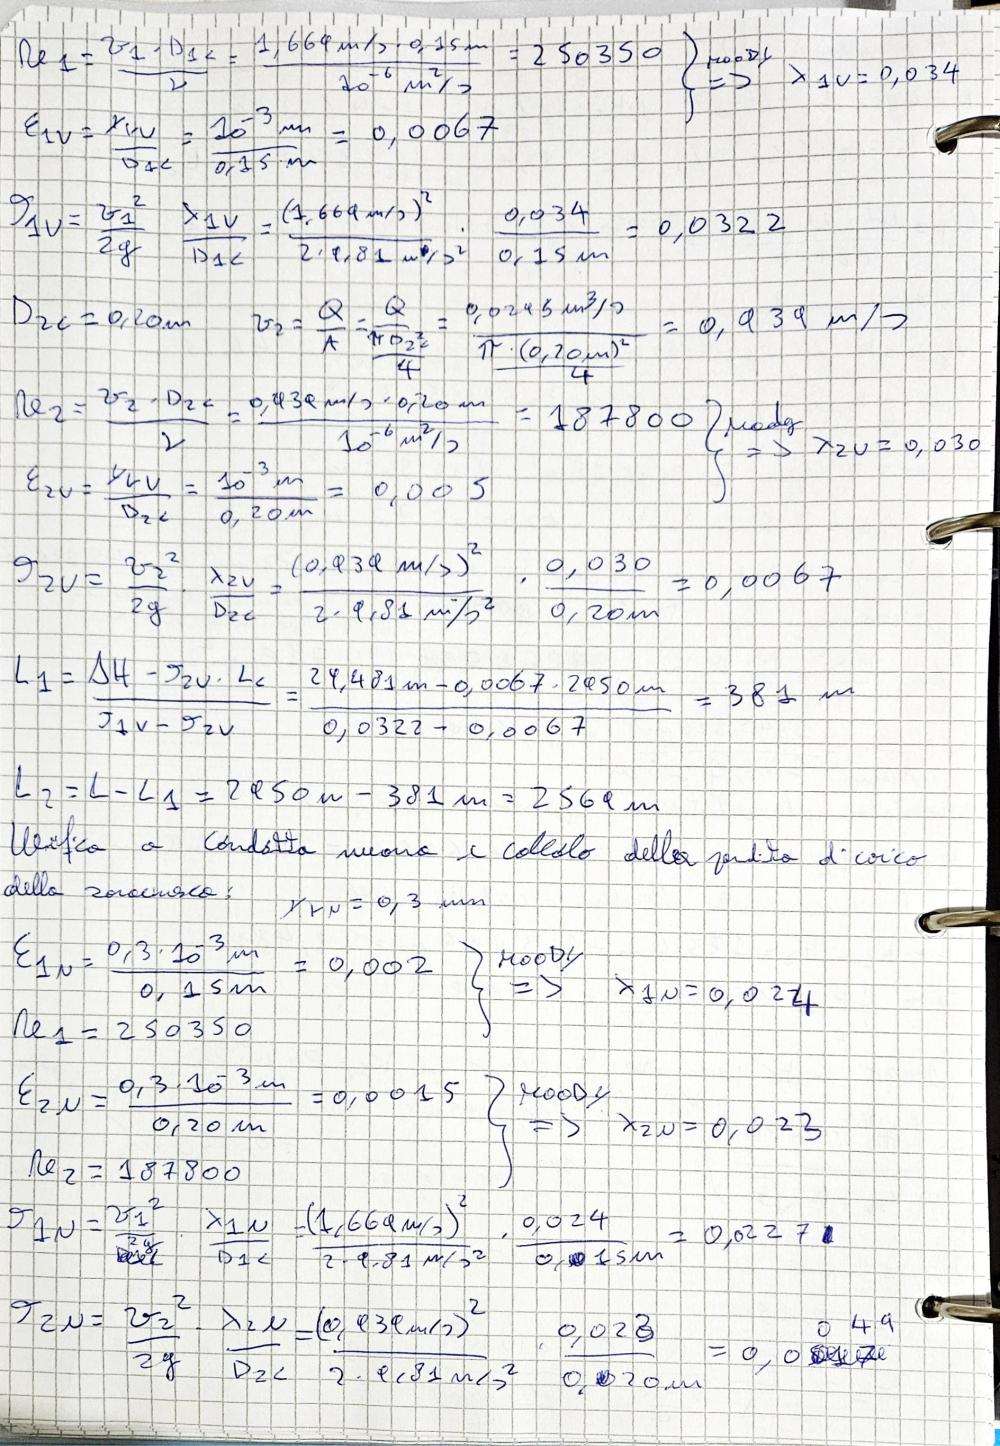 Re1 = v1 · D1c / ν = 1,669 m/s · 0,15 m / 10^-6 m²/s = 250350 } MOODY => λ1V = 0,034
ε1V = γrV / D1c = 10^-3 m / 0,15 m = 0,0067
J1V = v1² / 2g λ1V / D1c = (1,669 m/s)² / 2·9,81 m/s² · 0,034 / 0,15 m = 0,0322
D2c = 0,20 m v2 = Q / A = Q / (π D2² / 4) = 0,0295 m³/s / (π · (0,20 m)² / 4) = 0,939 m/s
Re2 = v2 · D2c / ν = 0,939 m/s · 0,20 m / 10^-6 m²/s = 187800 } Moody => λ2V = 0,030
ε2V = γrV / D2c = 10^-3 m / 0,20 m = 0,005
J2V = v2² / 2g · λ2V / D2c = (0,939 m/s)² / 2·9,81 m/s² · 0,030 / 0,20 m = 0,0067
L1 = ΔH - J2V · Lc / J1V - J2V = 29,481 m - 0,0067 · 2950 m / 0,0322 - 0,0067 = 381 m
L2 = L - L1 = 2950 m - 381 m = 2569 m
Verifica a condotta nuova e calcolo della perdita di carico
della saracinesca: γrN = 0,3 mm
ε1N = 0,3 · 10^-3 m / 0,15 m = 0,002 } MOODY => λ1N = 0,024
Re1 = 250350
ε2N = 0,3 · 10^-3 m / 0,20 m = 0,0015 } MOODY => λ2N = 0,023
Re2 = 187800
J1N = v1² / 2g · λ1N / D1c = (1,669 m/s)² / 2·9,81 m/s² · 0,024 / 0,15 m = 0,0227
J2N = v2² / 2g · λ2N / D2c = (0,939 m/s)² / 2·9,81 m/s² · 0,023 / 0,20 m = 0,0049